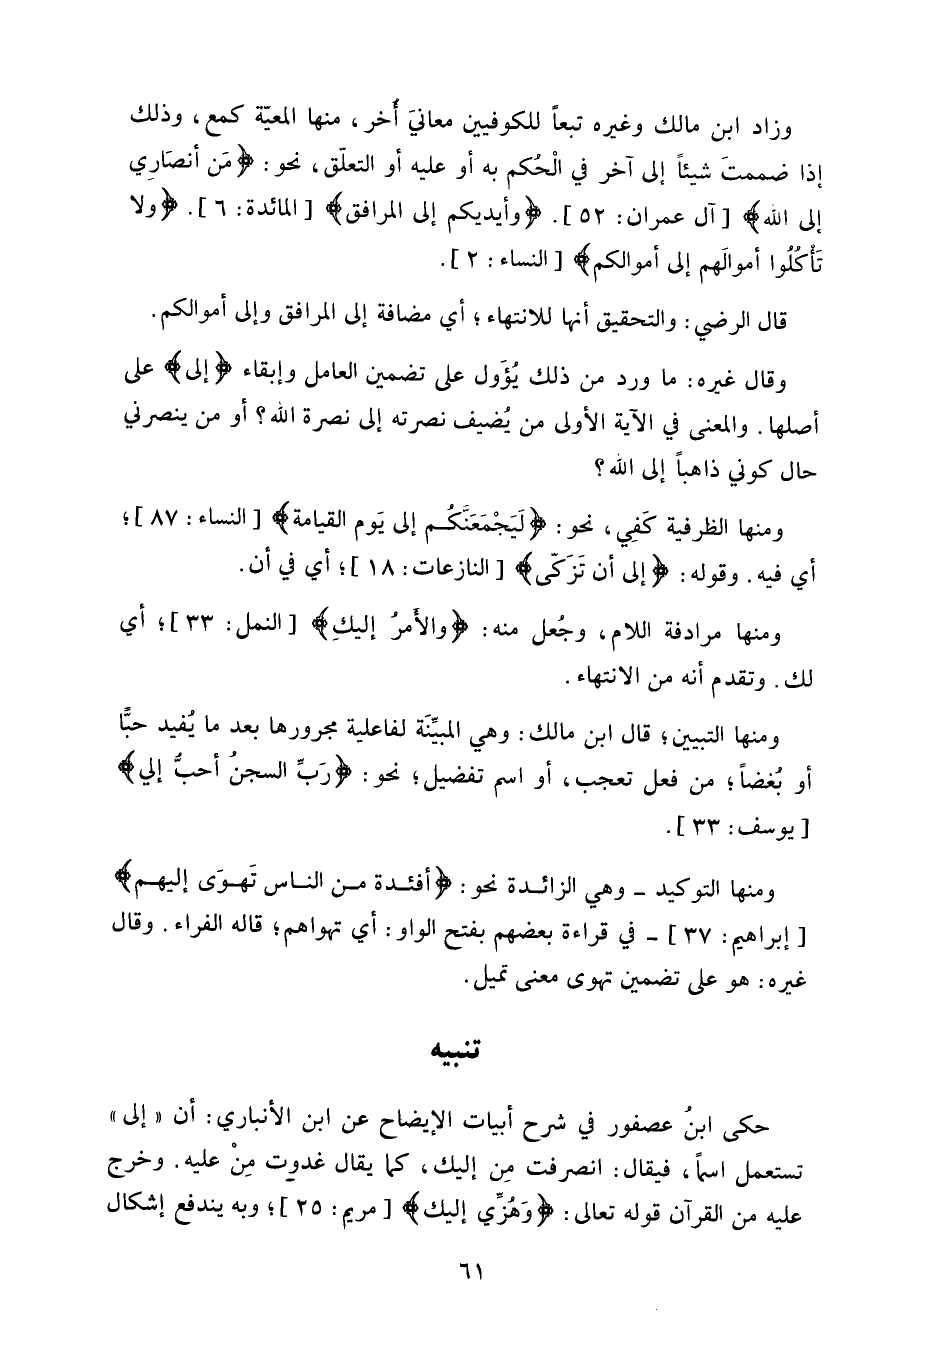 وزاد ابن مالك وغيره تبعاً للكوفيين معانيَ أُخر، منها المعيّة كمع، وذلك
إذا ضممتَ شيئاً إلى آخر في الْحُكم به أو عليه أو التعلّق، نحو: ﴿مَن أنصَارِي
إلى الله﴾ [ آل عمران: ٥٢ ]. ﴿وأيديكم إلى المرافق﴾ [ المائدة: ٦ ]. ﴿ولا
تَأْكُلُوا أموالَهم إلى أموالكم﴾ [ النساء: ٢ ].
قال الرضي: والتحقيق أنها للانتهاء؛ أي مضافة إلى المرافق وإلى أموالكم.
وقال غيره: ما ورد من ذلك يُؤَول على تضمين العامل وإبقاء ﴿إلى﴾ على
أصلها. والمعنى في الآية الأولى من يُضيف نصرته إلى نصرة الله؟ أو من ينصرني
حال كوني ذاهباً إلى الله؟
ومنها الظرفية كَفِي، نحو: ﴿لَيَجْمَعَنَّكُم إلى يَوم القيامة﴾ [ النساء: ٨٧ ]؛
أي فيه. وقوله: ﴿إلى أن تَزَكّى﴾ [ النازعات: ١٨ ]؛ أي في أن.
ومنها مرادفة اللام، وجُعل منه: ﴿والأَمرُ إليكِ﴾ [ النمل: ٣٣ ]؛ أي
لك. وتقدم أنه من الانتهاء.
ومنها التبيين؛ قال ابن مالك: وهي المبيِّنَة لفاعلية مجرورها بعد ما يُفيد حبًّا
أو بُغضاً؛ من فعل تعجب، أو اسم تفضيل؛ نحو: ﴿رَبِّ السجنُ أحبُّ إلي﴾
[ يوسف: ٣٣ ].
ومنها التوكيد ـ وهي الزائدة نحو: ﴿أفئدة من الناس تَهوَى إليهم﴾
[ إبراهيم: ٣٧ ] ـ في قراءة بعضهم بفتح الواو: أي تهواهم؛ قاله الفراء. وقال
غيره: هو على تضمين تهوى معنى تميل.
تنبيه
حكى ابنُ عصفور في شرح أبيات الإيضاح عن ابن الأنباري: أن «إلى»
تستعمل اسماً، فيقال: انصرفت مِن إليك، كما يقال غدوت مِنْ عليه. وخرج
عليه من القرآن قوله تعالى: ﴿وَهُزِّي إليك﴾ [ مريم: ٢٥ ]؛ وبه يندفع إشكال
٦١